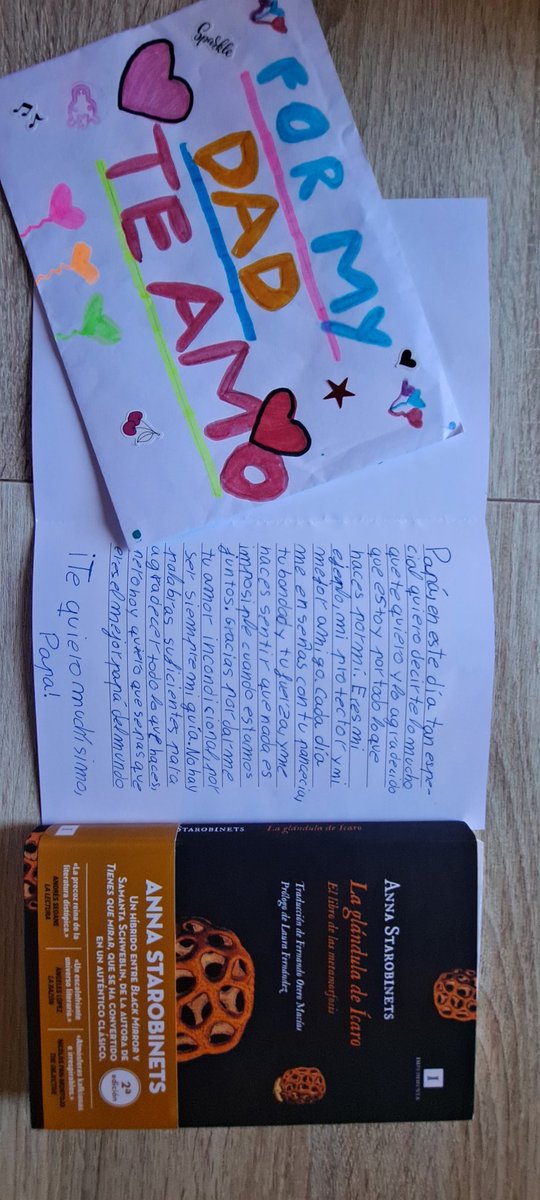 Sparkle
FOR MY
DAD
TE AMO
Papá, en este día tan espe-
cial quiero decirte lo mucho
que te quiero y lo agradecido
que estoy por todo lo que
haces por mi. Eres mi
ejemplo, mi protector y mi
mejor amigo. Cada día
me enseñas con tu paciencia,
tu bondad y tu fuerza, y me
haces sentir que nada es
imposible cuando estamos
juntos. Gracias por darme
tu amor incondicional, por
ser siempre mi guía. No hay
palabras suficientes para
agradecer todo lo que haces,
pero hoy quiero que sepas que
eres el mejor papá del mundo
¡Te quiero muchísimo,
Papa!
STAROBINETS La glándula de Ícaro
ANNA STAROBINETS
La glándula de Ícaro
El libro de las metamorfosis
Traducción de Fernando Otero Macías
Prólogo de Laura Fernández
IMPEDIMENTA
ANNA STAROBINETS
UN HÍBRIDO ENTRE BLACK MIRROR Y
SAMANTA SCHWEBLIN, DE LA AUTORA DE
TIENES QUE MIRAR, QUE SE HA CONVERTIDO
EN UN AUTÉNTICO CLÁSICO.
2ª
edición
«La precoz reina de la
literatura distópica.»
ANDRÉS SEOANE
LA LECTURA
«Un escalofriante
universo literario.»
ANDREA LÓPEZ
LA RAZÓN
«Atmósferas kafkianas
e irrespirables.»
THE OBJECTIVE